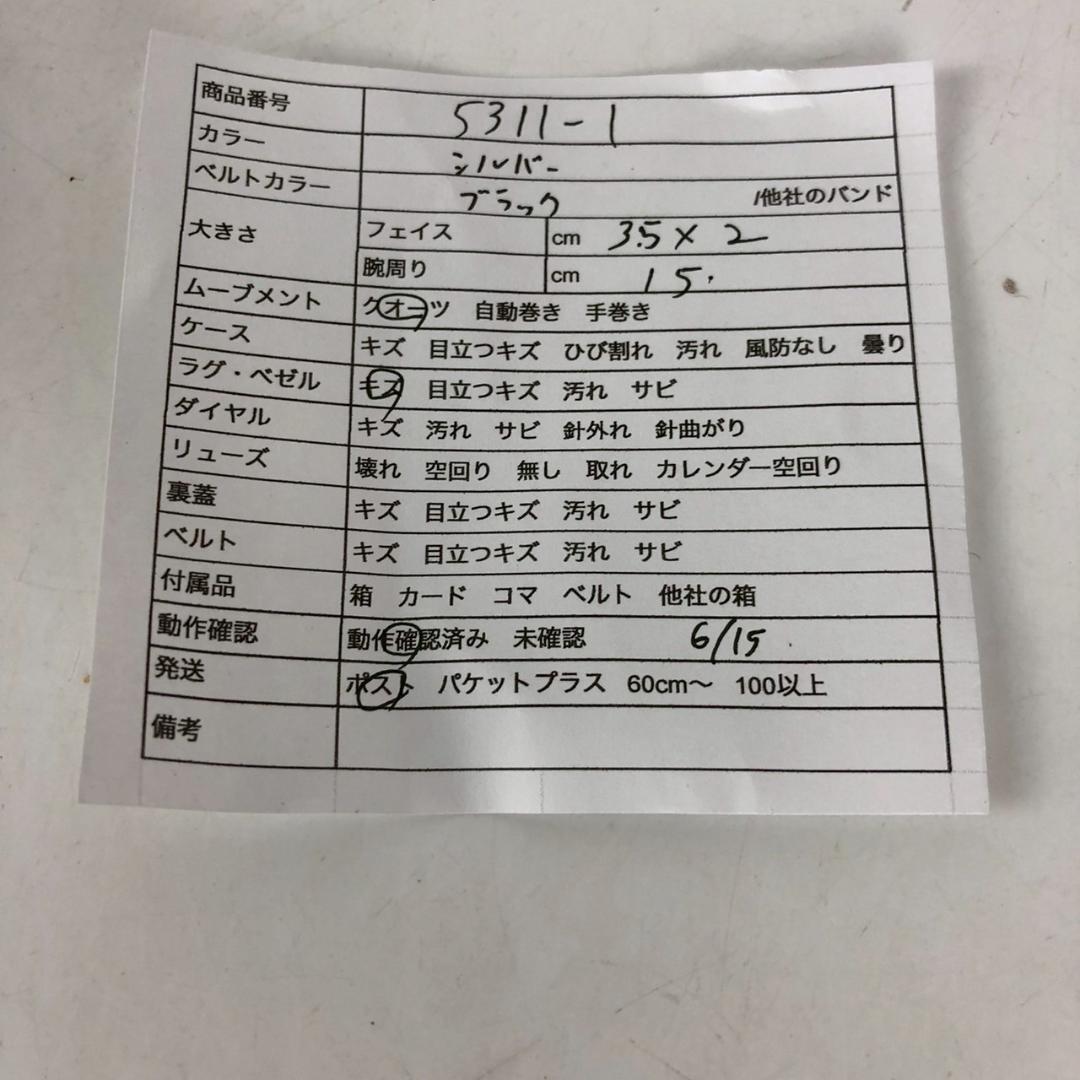 商品番号 5311-1
カラー シルバー
ベルトカラー ブラック /他社のバンド
大きさ フェイス cm 3.5×2
腕周り cm 15.
ムーブメント クオーツ 自動巻き 手巻き
ケース キズ 目立つキズ ひび割れ 汚れ 風防なし 曇り
ラグ・ベゼル キズ 目立つキズ 汚れ サビ
ダイヤル キズ 汚れ サビ 針外れ 針曲がり
リューズ 壊れ 空回り 無し 取れ カレンダー空回り
裏蓋 キズ 目立つキズ 汚れ サビ
ベルト キズ 目立つキズ 汚れ サビ
付属品 箱 カード コマ ベルト 他社の箱
動作確認 動作確認済み 未確認 6/15
発送 ポスト パケットプラス 60cm〜 100以上
備考